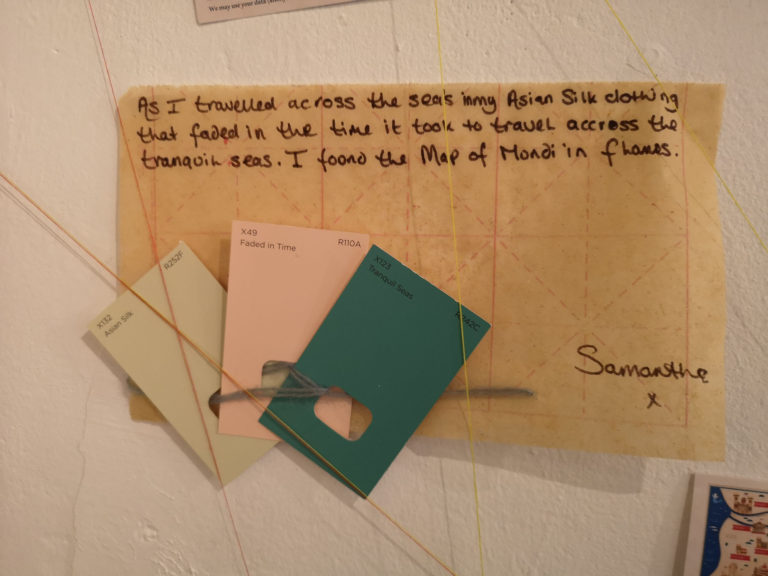 We may use your data (
As I travelled across the seas in my Asian Silk clothing
that faded in the time it took to travel accross the
tranquil seas. I foond the Map of Mondi in flames.
X49
R110A
Faded in Time
R252F
X132
Asian Silk
X123
Tranquil Seas
Samantha
x